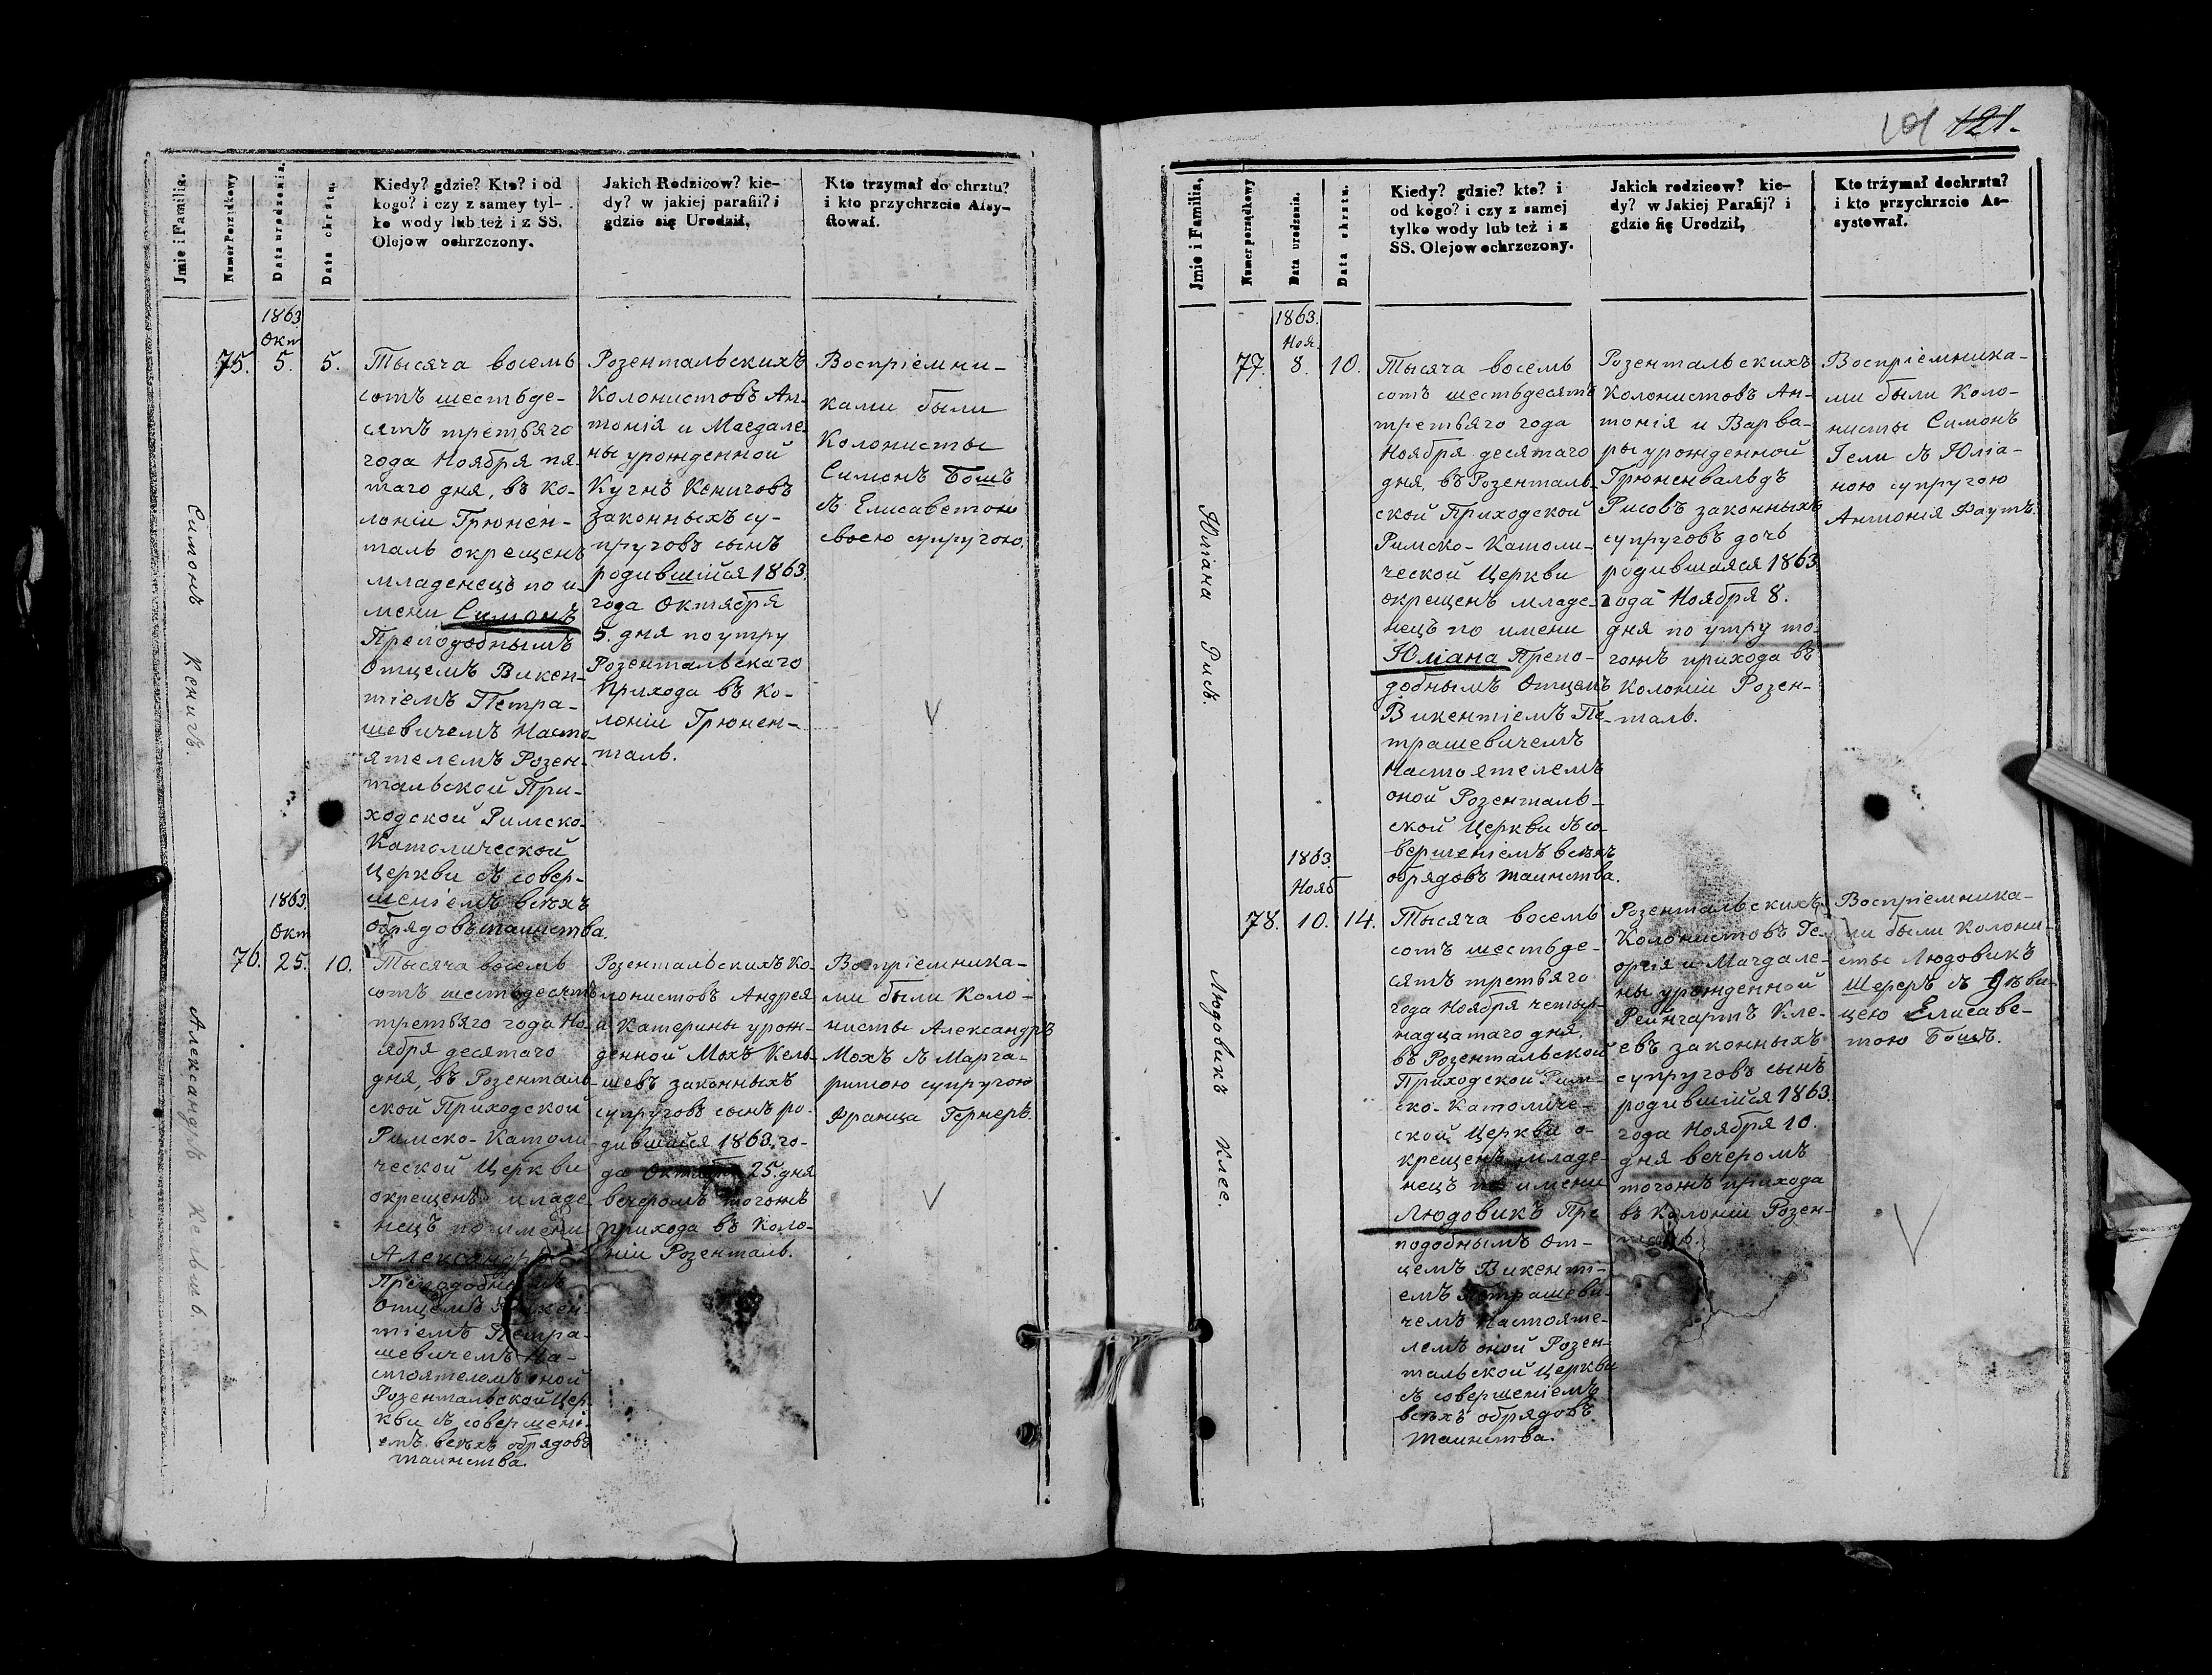 Jmie i Familia.
Numer Porządkowy
Data urodzenia.
Data chrztu.
Kiedy? gdzie? Kto? i od
kogo? i czy z samey tyl-
ko wody lub też i z SS.
Olejow ochrzczony.
Jakich Rodzicow? kie-
dy? w jakiej parafii? i
gdzie się Urodził,
Kto trzymał do chrztu?
i kto przychrzcie Assy-
stował.
Симонъ Кенигъ.
1863.
Окт
75.
5.
5.
Тысяча восемь
сотъ шестьде-
сятъ третьяго
года Ноября пя-
таго дня, въ ко-
лоніи Грюнен-
таль окрещенъ
младенецъ по и-
мени Симонъ
Преподобнымъ
Отцемъ Викен-
тіемъ Петра-
шевичемъ Насто-
ятелемъ Розен-
тальской При-
ходской Римско-
Католической
Церкви съ совер-
шеніемъ всѣхъ
обрядовъ таинства.
Розентальскихъ
Колонистовъ Ан-
тонія и Магдале-
ны урожденной
Кугнъ Кениговъ
законныхъ су-
пруговъ сынъ
родившійся 1863.
года Октября
5. дня по утру
Розентальскаго
прихода въ Ко-
лоніи Грюнен-
таль.
Воспріемни-
ками были
Колонисты
Симонъ Бошъ
съ Елисаветою
своею супругою.
Александръ Кельшъ.
1863.
Окт
76.
25.
10.
Тысяча восемь
сотъ шестьдесятъ
третьяго года Но-
ября десятаго
дня, въ Розенталь-
ской Приходской
Римско-Католи-
ческой Церкви
окрещенъ младе-
нецъ по имени
Александръ
Преподобнымъ
Отцемъ Викен-
тіемъ Петра-
шевичемъ На-
стоятелемъ оной
Розентальской Цер-
кви съ совершені-
емъ всѣхъ обрядовъ
таинства.
Розентальскихъ Ко-
лонистовъ Андрея
и Катерины урож-
денной Мохъ Кель-
шевъ законныхъ
супруговъ сынъ ро-
дившійся 1863. го-
да Октября 25. дня
вечеромъ тогожъ
прихода въ Коло-
ніи Розенталь.
Воспріемника-
ми были Коло-
нисты Александръ
Мохъ съ Марга-
ритою супругою
Франца Гернеръ.
121.
Jmie i Familia,
Numer porządkowy
Data urodzenia.
Data chrztu.
Kiedy? gdzie? kto? i
od kogo? i czy z samej
tylko wody lub też i z
SS. Olejow ochrzczony.
Jakich rodzicow? kie-
dy? w Jakiej Parafij? i
gdzie się Urodził,
Kto trżymał dochrztu?
i kto przychrzcie As-
systował.
Юліана Рисъ.
1863.
Ноя.
77.
8.
10.
Тысяча восемь
сотъ шестьдесятъ
третьяго года
Ноября десятаго
дня, въ Розенталь-
ской Приходской
Римско-Католи-
ческой Церкви
окрещенъ младе-
нецъ по имени
Юліана Препо-
добнымъ Отцемъ
Викентіемъ Пе-
трашевичемъ
Настоятелемъ
оной Розенталь-
ской Церкви съ со-
вершеніемъ всѣхъ
обрядовъ таинства.
Розентальскихъ
Колонистовъ Ан-
тонія и Варва-
ры урожденной
Грюненвальдъ
Рисовъ законныхъ
супруговъ дочь
родившаяся 1863
года Ноября 8.
дня по утру то-
гожъ прихода въ
Колоніи Розен-
таль.
Воспріемника-
ми были Коло-
нисты Симонъ
Іели съ Юліа-
ною супругою
Антонія Фаутъ.
Людовикъ Клее.
1863.
Нояб
78.
10.
14.
Тысяча восемь
сотъ шестьде-
сятъ третьяго
года Ноября четыр-
надцатаго дня,
въ Розентальской
Приходской Рим-
ско-Католиче-
ской Церкви о-
крещенъ младе-
нецъ по имени
Людовикъ Пре
подобнымъ От-
цемъ Викенті-
емъ Петрашеви-
чемъ Настояте-
лемъ оной Розен-
тальской Церкви
съ совершеніемъ
всѣхъ обрядовъ
таинства.
Розентальскихъ
Колонистовъ Ге-
оргія и Магдале-
ны урожденной
Рейнгартъ Кле-
евъ законныхъ
супруговъ сынъ
родившійся 1863.
года Ноября 10.
дня вечеромъ
тогожъ прихода
въ Колоніи Розен-
таль.
Воспріемника-
ми были Колони-
сты Людовикъ
Шереръ съ Дѣви-
цею Елисаве-
тою Бошъ.